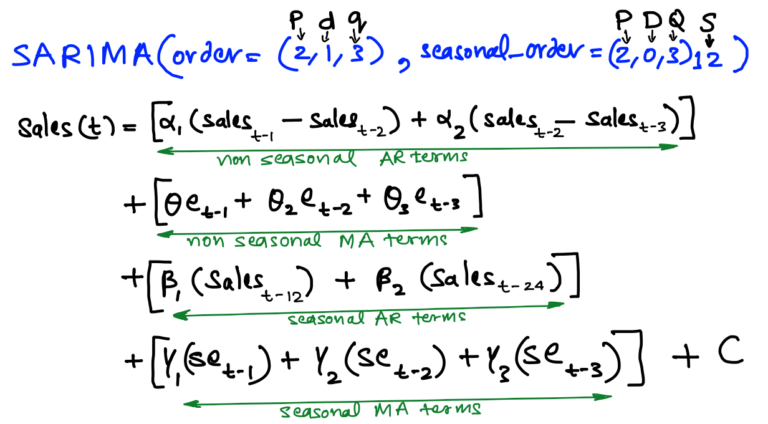 P d q P D Q S
SARIMA(order= (2,1,3), seasonal_order=(2,0,3)12)
Sales(t) = [α₁(sales_t-1 − sales_t-2) + α₂(sales_t-2 − sales_t-3)]
non seasonal AR terms
+[θe_t-1 + θ₂e_t-2 + θ₃e_t-3]
non seasonal MA terms
+[β₁(Sales_t-12) + β₂(Sales_t-24)]
seasonal AR terms
+[γ₁(se_t-1) + γ₂(se_t-2) + γ₃(se_t-3)] + C
seasonal MA terms